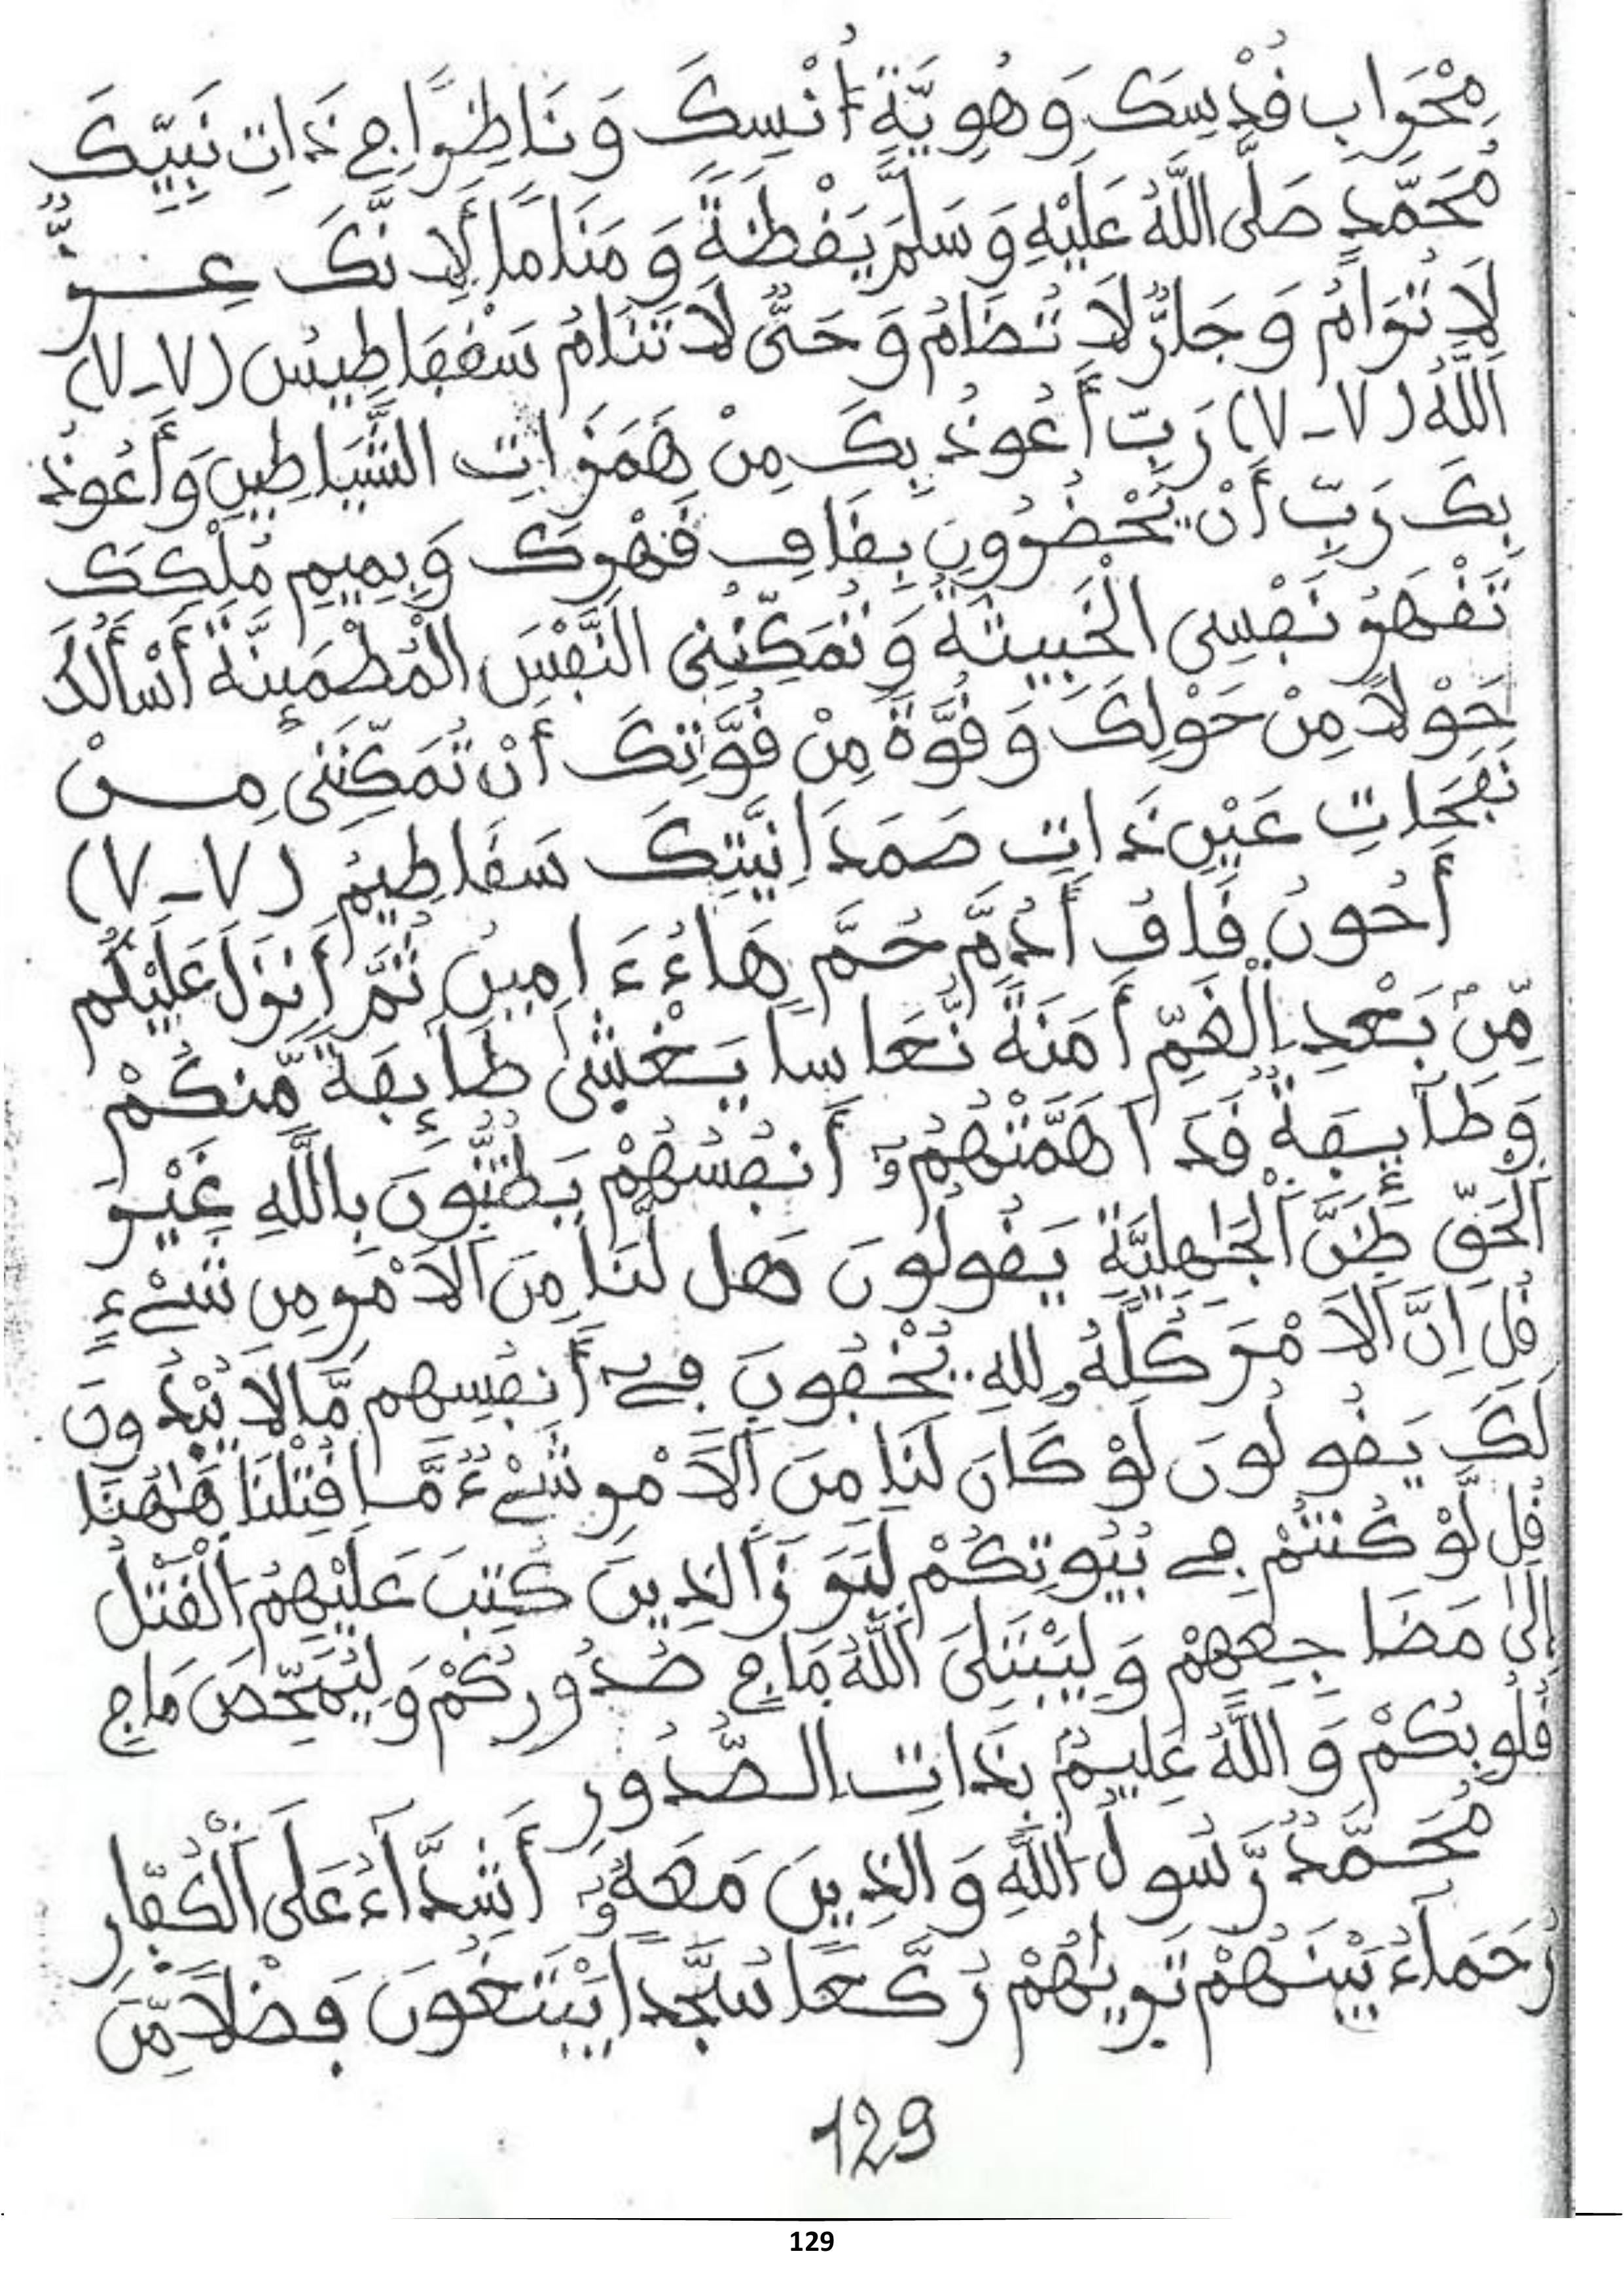 مِحْرَابِ قُدْسِكَ وَهُوِيَّةِ أُنْسِكَ وَنَاظِرًا فِي ذَاتِ نَبِيِّكَ
مُحَمَّدٍ صَلَّى اللَّهُ عَلَيْهِ وَسَلَّمَ يَقْظَةً وَمَنَامًا لِأَنَّكَ عِزٌّ
لَا تُرَامُ وَجَارٌ لَا تُضَامُ وَحَيٌّ لَا تَنَامُ سَقْفَاطِيسُ (٧-٧)
اَللَّهُ (٧-٧) رَبِّ أَعُوذُ بِكَ مِنْ هَمَزَاتِ الشَّيَاطِينِ وَأَعُوذُ
بِكَ رَبِّ أَنْ يَّحْضُرُونِ بِقَافِ قَهْرِكَ وَبِمِيمِ مُلْكِكَ
تَقْهَرُ نَفْسِي الْخَبِيثَةَ وَتُمَكِّنُنِي النَّفْسَ الْمُطْمَئِنَّةَ أَسْأَلُكَ
حَوْلًا مِنْ حَوْلِكَ وَقُوَّةً مِنْ قُوَّتِكَ أَنْ تُمَكِّنَنِي مِنْ
نَفَحَاتِ عَيْنِ ذَاتِ صَمَدَانِيَّتِكَ سَقَاطِيمُ (٧-٧)
أَحُونُ قَافُ أَدُمَّ حُمَّ هَاءُ ءَامِينُ ثُمَّ أَنزَلَ عَلَيْكُم
مِّنۢ بَعْدِ اِلْغَمِّ أَمَنَةً نُّعَاسًا يَغْشَىٰ طَآئِفَةً مِّنكُمْ
وَطَآئِفَةٌ قَدَ اَهَمَّتْهُمُۥٓ أَنفُسُهُمْ يَظُنُّونَ بِاللَّهِ غَيْرَ
اَلْحَقِّ ظَنَّ اَلْجَٰهِلِيَّةِ يَقُولُونَ هَل لَّنَا مِنَ اَلَامْرِ مِن شَےْءٍ
قُلِ اِنَّ اَلَامْرَ كُلَّهُۥ لِلهِ يُخْفُونَ فِےٓ أَنفُسِهِم مَّا لَا يُبْدُونَ
لَكَ يَقُولُونَ لَوْ كَانَ لَنَا مِنَ اَلَامْرِ شَےْءٌ مَّا قُتِلْنَا هَٰهُنَا
قُل لَّوْ كُنتُمْ فِے بُيُوتِكُمْ لَبَرَزَ اَلذِينَ كُتِبَ عَلَيْهِمُ اُلْقَتْلُ
إِلَىٰ مَضَاجِعِهِمْ وَلِيَبْتَلِيَ اَللَّهُ مَا فِي صُدُورِكُمْ وَلِيُمَحِّصَ مَا فِي
قُلُوبِكُمْ وَاللَّهُ عَلِيمٌۢ بِذَاتِ الصُّدُورِ
مُحَمَّدٌ رَّسُولُ اُللَّهِ وَالذِينَ مَعَهُۥٓ أَشِدَّآءُ عَلَى اَلْكُفَّارِ
رُحَمَآءُ بَيْنَهُمْ تَرَىٰهُمْ رُكَّعًا سُجَّدًا يَبْتَغُونَ فَضْلًا مِّنَ
129
129